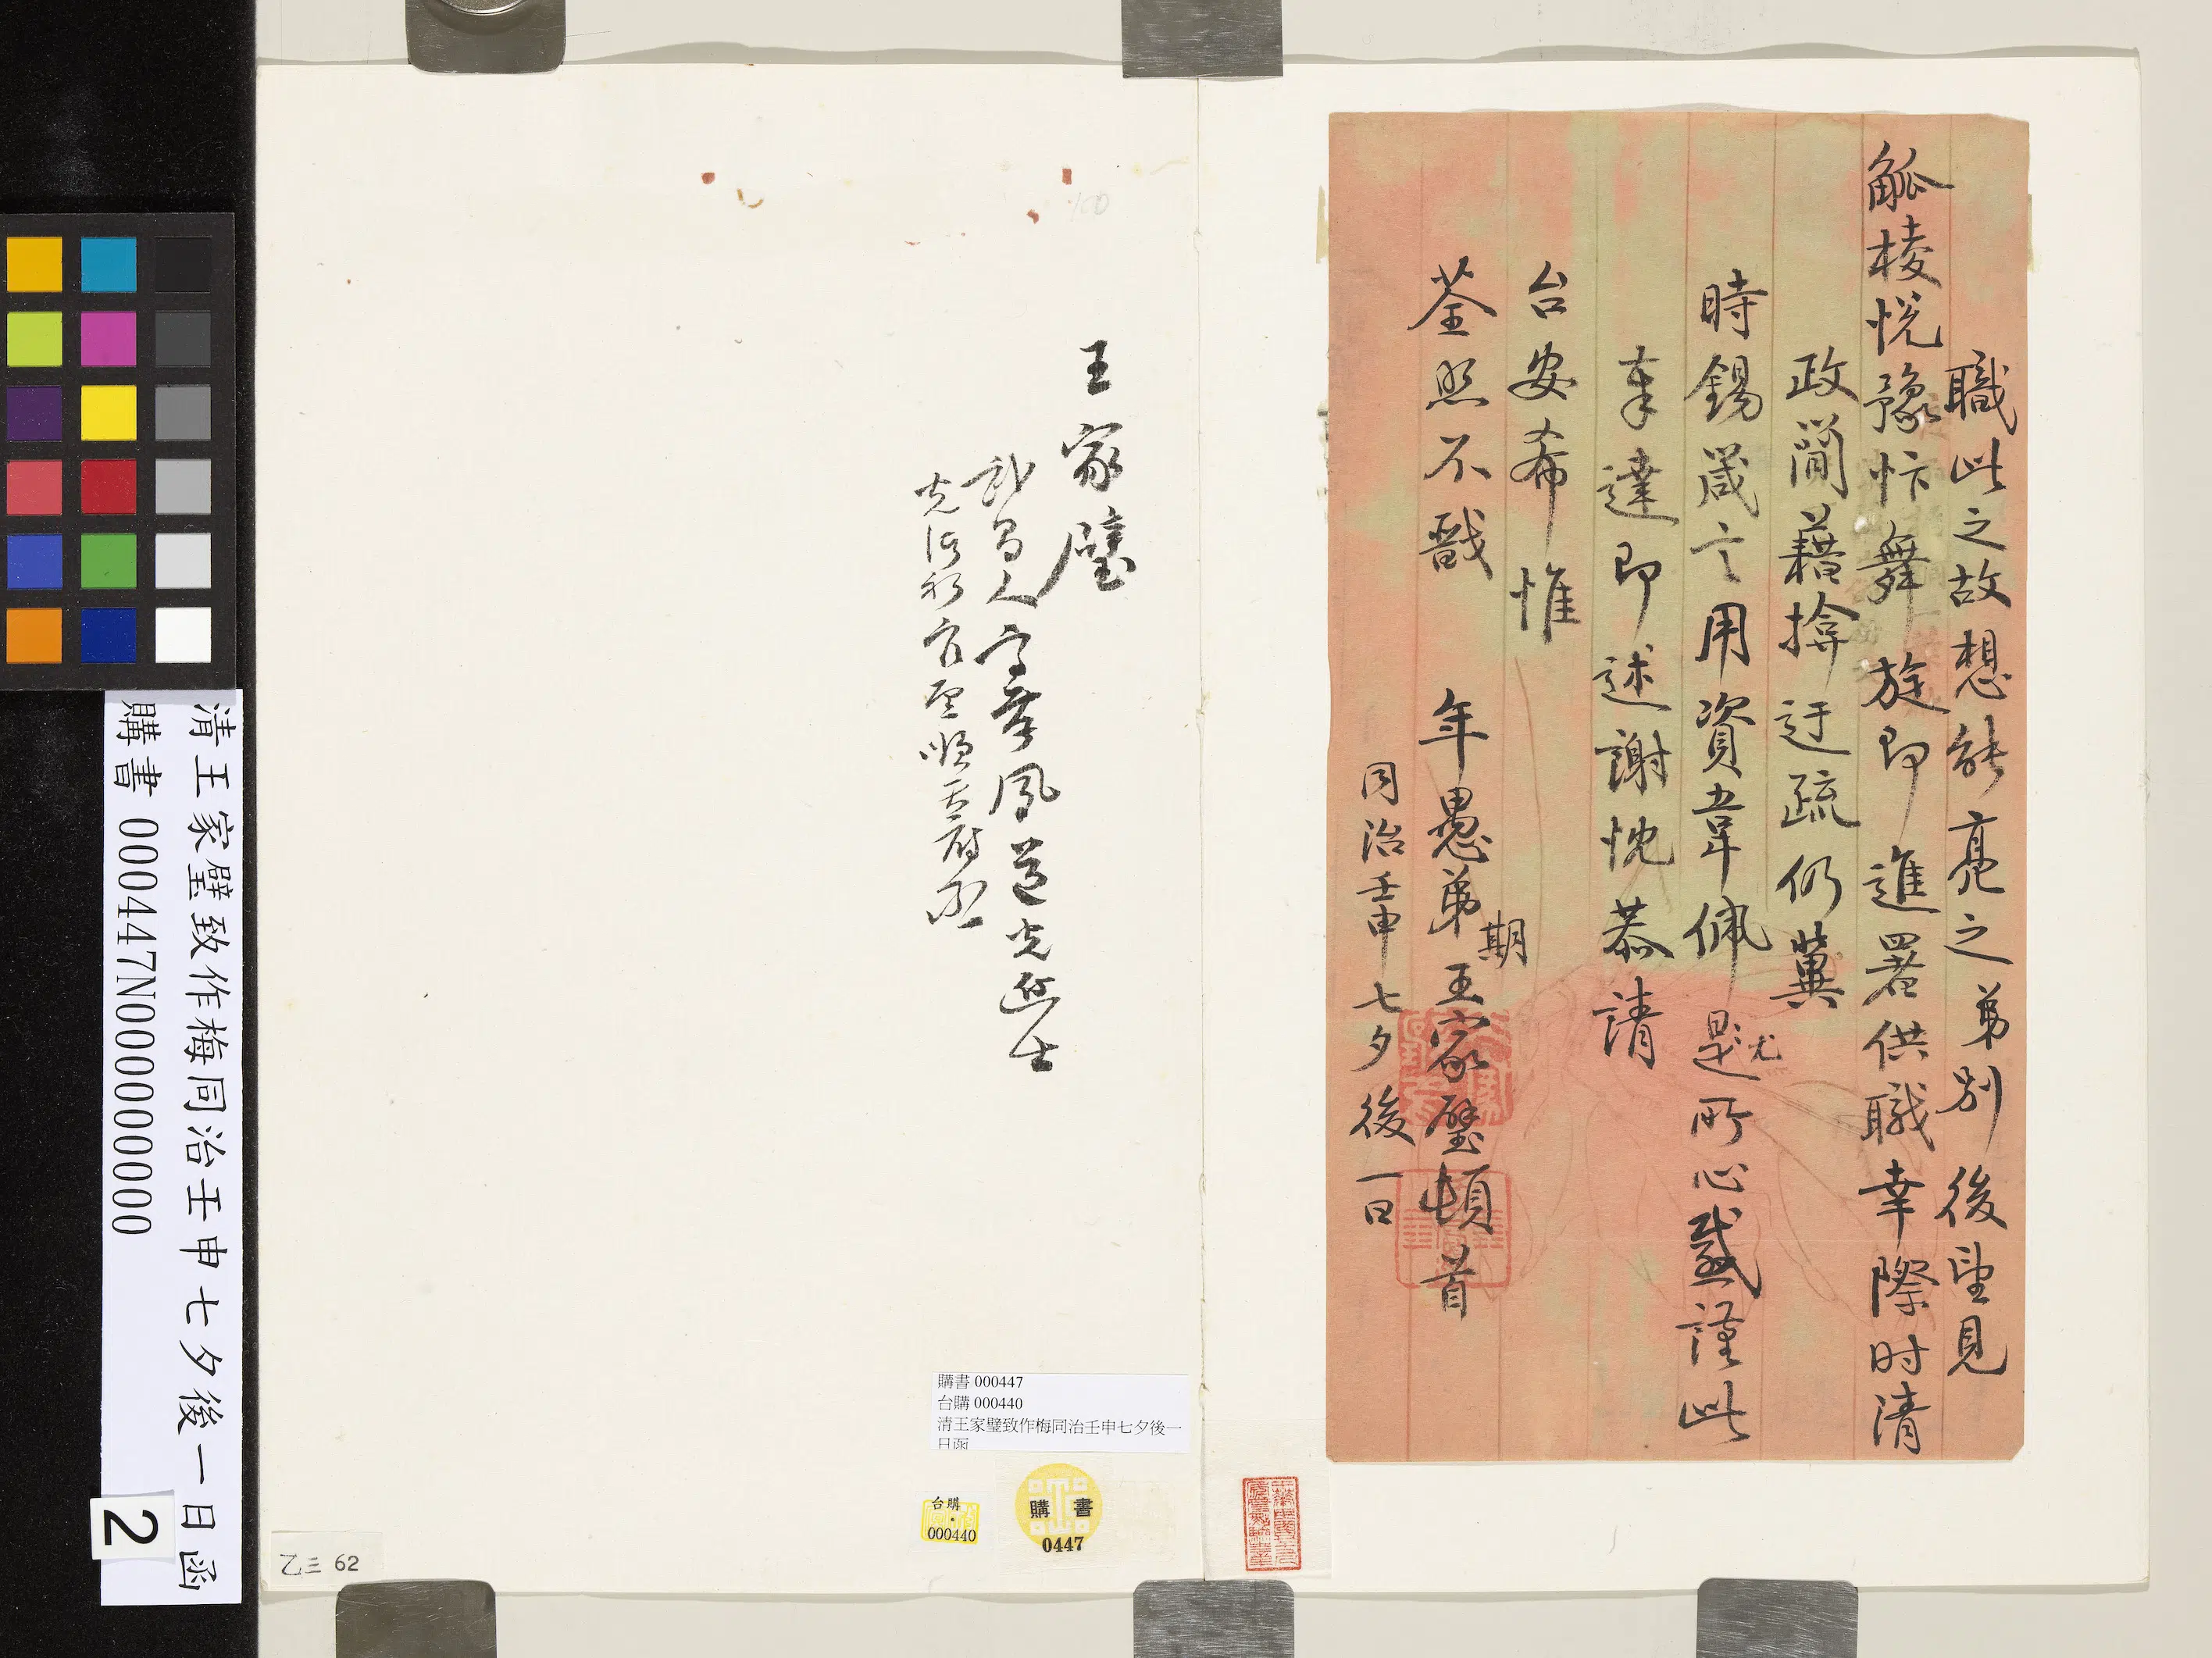 職此之故想能亮之弟別後望見
觚棱悅豫忭舞旋即進署供職幸際时清
政簡藉揜迂疏仍冀
時錫箴言用資韋佩尤是所心感謹此
奉達即述謝忱恭請
台安希惟
荃照不戩
年愚弟期王家璧頓首
同治壬申七夕後一日
王家璧
武昌人字孝鳳道光進士
光緒初官至順天府丞
購書 000447
台購 000440
清王家璧致作梅同治壬申七夕後一
日函
台購
000440
購書
0447
乙三 62
清王家璧致作梅同治壬申七夕後一日函
購書 000447N000000000
2